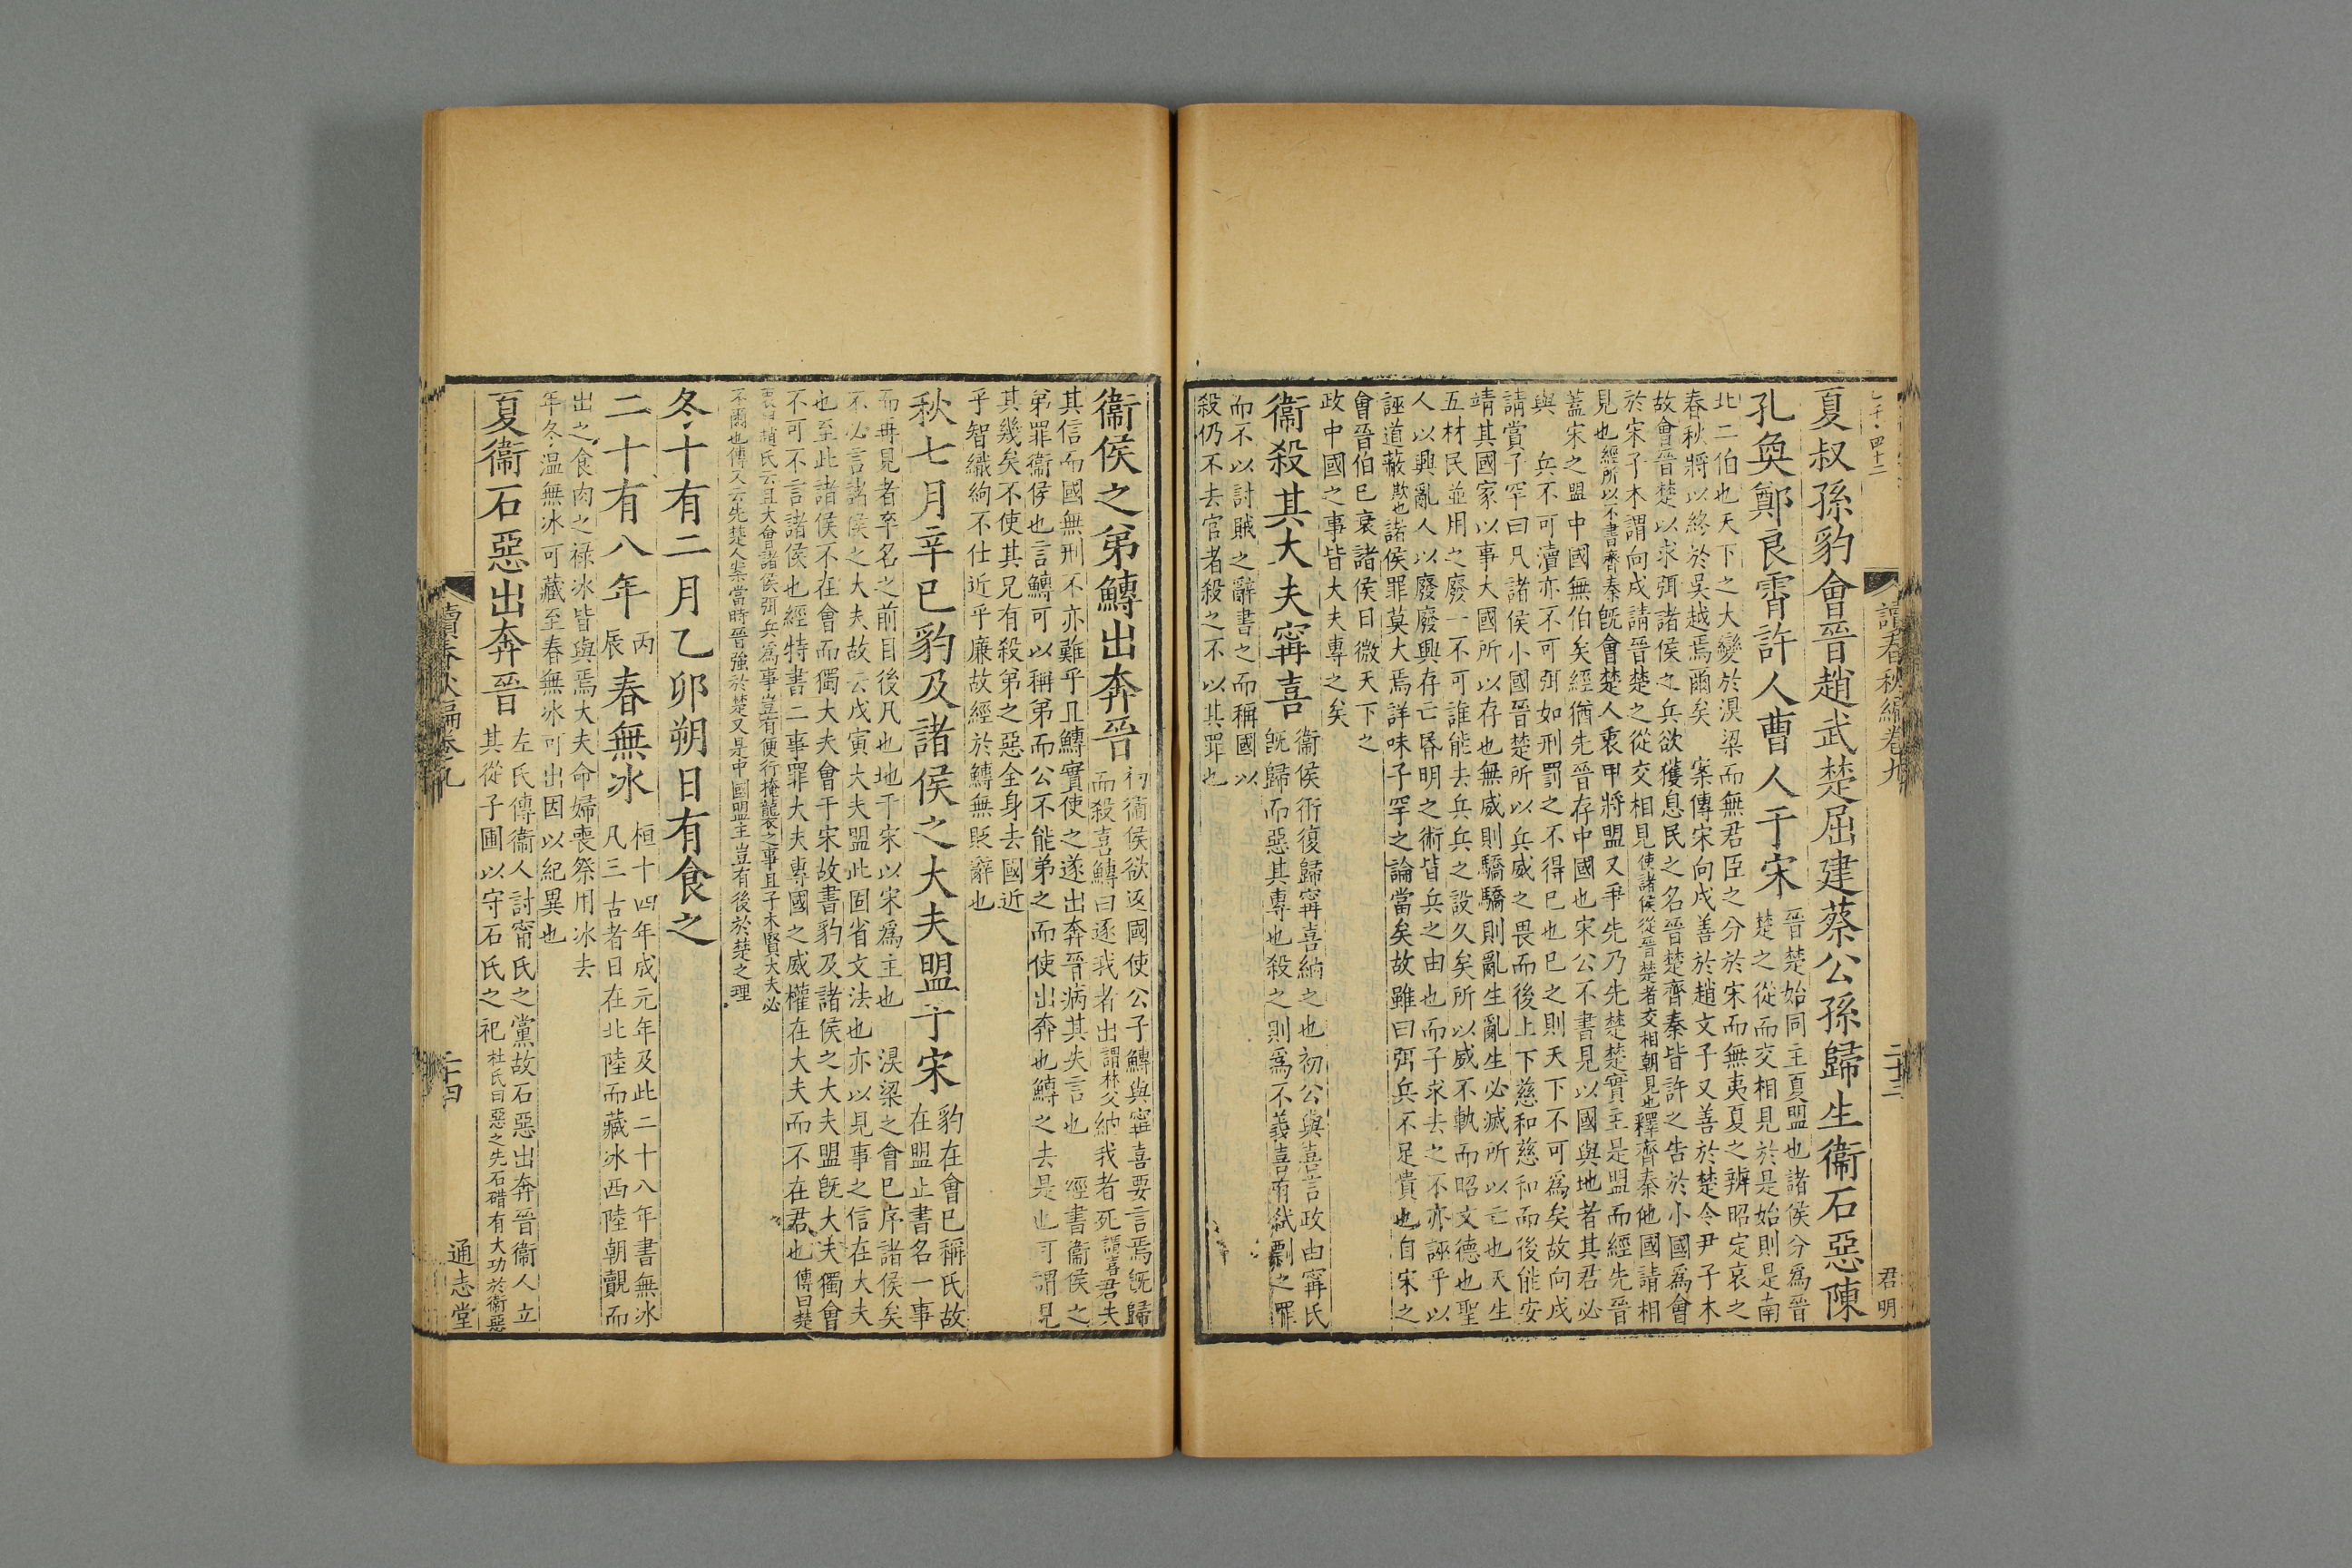 讀春秋編卷九
二十三
君明
夏叔孫豹會晉趙武楚屈建蔡公孫歸生衞石惡陳
孔奐鄭良霄許人曹人于宋
晉楚始同主夏盟也諸侯分爲晉
楚之從而交相見於是始則是南
北二伯也天下之大變於湨梁而無君臣之分於宋而無夷夏之辨昭定哀之
春秋將以終於吳越焉爾矣 案傳宋向戌善於趙文子又善於楚令尹子木
故會晉楚以求弭諸侯之兵欲獲息民之名晉楚齊秦皆許之告於小國爲會
於宋子木謂向戌請晉楚之從交相見使諸侯從晉楚者交相朝見也釋齊秦他國請相
見也經所以不書齊秦旣會楚人衷甲將盟又爭先乃先楚楚實主是盟而經先晉
蓋宋之盟中國無伯矣經猶先晉存中國也宋公不書見以國與地者其君必
與 兵不可瀆亦不可弭如刑罰之不得已也已之則天下不可爲矣故向戌
請賞子罕曰凡諸侯小國晉楚所以兵威之畏而後上下慈和慈和而後能安
靖其國家以事大國所以存也無威則驕驕則亂生亂生必滅所以亡也天生
五材民並用之廢一不可誰能去兵兵之設久矣所以威不軌而昭文德也聖
人以興亂人以廢廢興存亡昏明之術皆兵之由也而子求去之不亦誣乎以
誣道蔽欺也諸侯罪莫大焉詳味子罕之論當矣故雖曰弭兵不足貴也自宋之
會晉伯已衰諸侯日微天下之
政中國之事皆大夫專之矣
衞殺其大夫甯喜
衞侯衎復歸甯喜納之也初公與喜言政由甯氏
旣歸而惡其專也殺之則爲不義喜有弒剽之罪
而不以討賊之辭書之而稱國以
殺仍不去官者殺之不以其罪也
衞侯之弟鱄出奔晉
初衞侯欲返國使公子鱄與甯喜要言焉旣歸
而殺喜鱄曰逐我者出謂林父納我者死謂喜君失
其信而國無刑不亦難乎且鱄實使之遂出奔晉病其失言也 經書衞侯之
弟罪衞侯也言鱄可以稱弟而公不能弟之而使出奔也鱄之去是也可謂見
其幾矣不使其兄有殺弟之惡全身去國近
乎智織絇不仕近乎廉故經於鱄無貶辭也
秋七月辛巳豹及諸侯之大夫盟于宋
豹在會已稱氏故
在盟止書名一事
而再見者卒名之前目後凡也地于宋以宋爲主也 湨梁之會已序諸侯矣
不必言諸侯之大夫故云戊寅大夫盟此固省文法也亦以見事之信在大夫
也至此諸侯不在會而獨大夫會于宋故書豹及諸侯之大夫盟旣大夫獨會
不可不言諸侯也經特書二事罪大夫專國之威權在大夫而不在君也傳曰楚
衷甲趙氏云且大會諸侯弭兵爲事豈有便行掩襲之事且子木賢大夫必
不爾也傳又云先楚人案當時晉強於楚又是中國盟主豈有後於楚之理
冬十有二月乙卯朔日有食之
二十有八年丙辰春無冰
桓十四年成元年及此二十八年書無冰
凡三古者日在北陸而藏冰西陸朝覿而
出之食肉之祿冰皆與焉大夫命婦喪祭用冰去
年冬溫無冰可藏至春無冰可出因以紀異也
夏衞石惡出奔晉
左氏傳衞人討甯氏之黨故石惡出奔晉衞人立
其從子圃以守石氏之祀杜氏曰惡之先石碏有大功於衞惡
讀春秋編卷九
二十四
通志堂